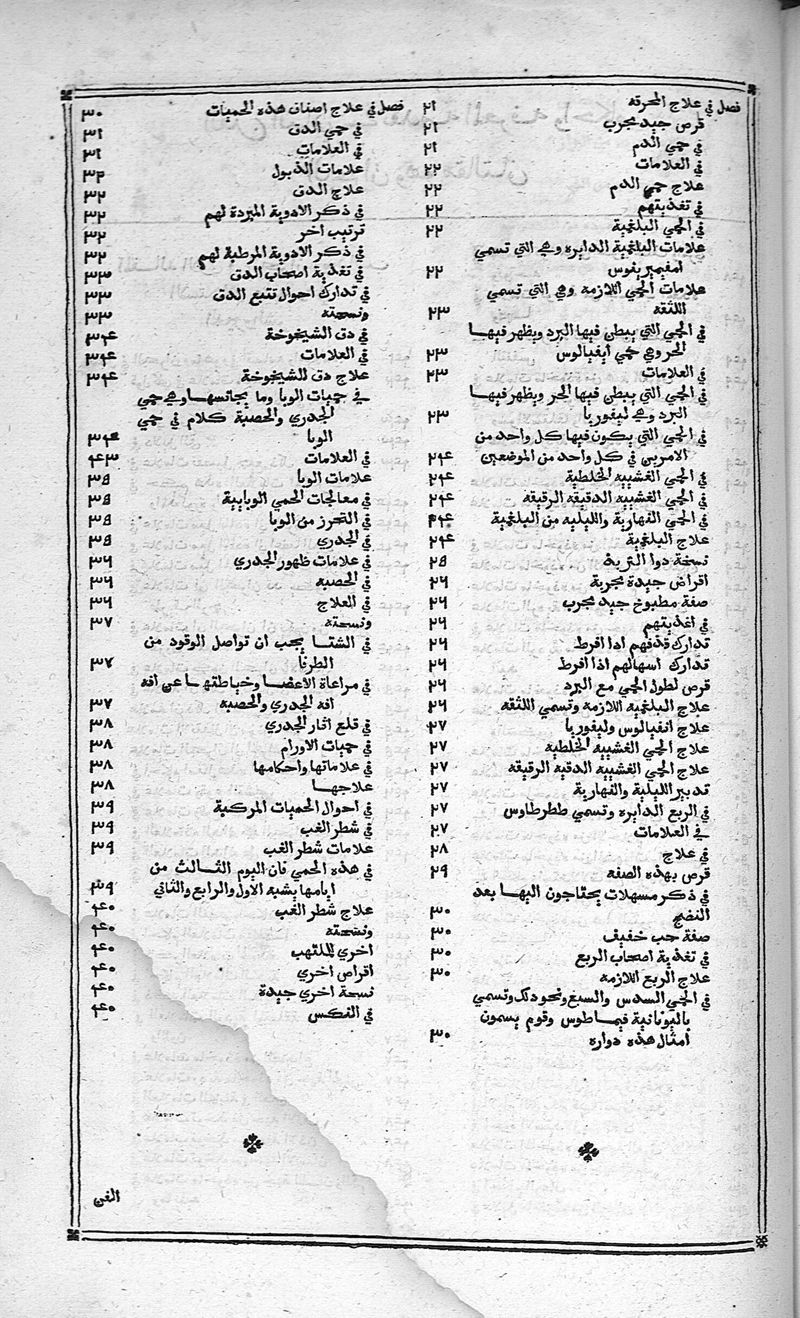 فصل في علاج المحرقه ٢١
قرص جيد مجرب ٢١
في حمي الدم ٢١
في العلامات ٢٢
علاج حمي الدم ٢٢
في تغذيتهم ٢٢
في الحمي البلغمية ٢٢
علامات البلغمية الدايره وهي التي تسمي
امفيمرينوس ٢٢
علامات الحمي اللازمه وهي التي تسمي
اللثقه ٢٣
في الحمي التي يبطن فيها البرد ويظهر فيهـا
الحر وهي حمي انفيالوس ٢٣
في العلامات ٢٣
في الحمي التي يبطن فيها الحر ويظهر فيهـا
البرد وهي ليفوريا ٢٣
في الحمي التي يكون فيها كل واحد من
الامرين في كل واحد من الموضعين ٢٤
في الحمي الغشييه الخلطية ٢٤
في الحمي الغشييه الدقيقه الرقيقه ٢٤
في الحمي النهارية والليليه من البلغمية ٢٤
علاج البلغمية ٢٤
نسخة دوا التربد ٢٥
اقراض جيدة مجربة ٢٦
صفة مطبوخ جيد مجرب ٢٦
في اغذيتهم ٢٦
تدارك قذفهم اذا افرط ٢٦
تدارك اسهالهم اذا افرط ٢٦
قرص لطول الحمي مع البرد ٢٦
علاج البلغميه اللازمه وتسمي اللثقه ٢٦
علاج انفيالوس وليفوريا ٢٧
علاج الحمي الغشييه الخلطيه ٢٧
علاج الحمي الغشييه الدقيه الرقيقه ٢٧
تدبير الليلية والنهارية ٢٧
في الربع الدايره وتسمي ططرطاوس ٢٧
في العلامات ٢٧
في علاج ٢٨
قرص بهذه الصفه ٢٩
في ذكر مسهلات يحتاجون اليها بعد
النضج ٣٠
صفة حب خفيف ٣٠
في تغذية اصحاب الربع ٣٠
علاج الربع اللازمه ٣٠
في الحمي السدس والسبع ونحو ذلك وتسمي
باليونانية فيماطوس وقوم يسمون
امثال هذه دواره ٣٠
فصل في علاج اصناف هذه الحميات ٣٠
في حمي الدق ٣١
في العلامات ٣١
علامات الذبول ٣٢
علاج الدق ٣٢
في ذكر الادوية المبردة لهم ٣٢
ترتيب اخر ٣٢
في ذكر الادوية المرطبة لهم ٣٢
في تغذية اصحاب الدق ٣٣
في تدارك احوال تتبع الدق ٣٣
ونسخته ٣٣
في دق الشيخوخة ٣٤
في العلامات ٣٤
علاج دق الشيخوخة ٣٤
في حميات الوبا وما يجانسهـا وهي حمي
الجدري والحصبة كلام في حمي
الوبا ٣٤
في العلامات ٤٣
علامات الوبا ٣٥
في معالجات الحمي الوبايية ٣٥
في التحرز من الوبا ٣٥
في الجدري ٣٥
في علامات ظهور الجدري ٣٦
في الحصبه ٣٦
في العلاج ٣٦
ونسخته ٣٧
في الشتـا يجب ان تواصل الوقود من
الطرفا ٣٧
في مراعاة الاعضـا وحياطتهـا عن افه
افه الجدري والحصبه ٣٧
في قلع اثار الجدري ٣٨
في حميات الاورام ٣٨
في علاماتها واحكامها ٣٨
علاجهـا ٣٨
في احوال الحميات المركبة ٣٩
في شطر الغب ٣٩
علامات شطر الغب ٣٩
في هذه الحمي فان اليوم الثـالـث من
ايامها يشبه الاول والرابع والثاني ٣٩
علاج شطر الغب ٤٠
ونسخته ٤٠
اخري للملتهب ٤٠
اقراص اخري ٤٠
نسخة اخري جيدة ٤٠
في النكس ٤٠
الفن